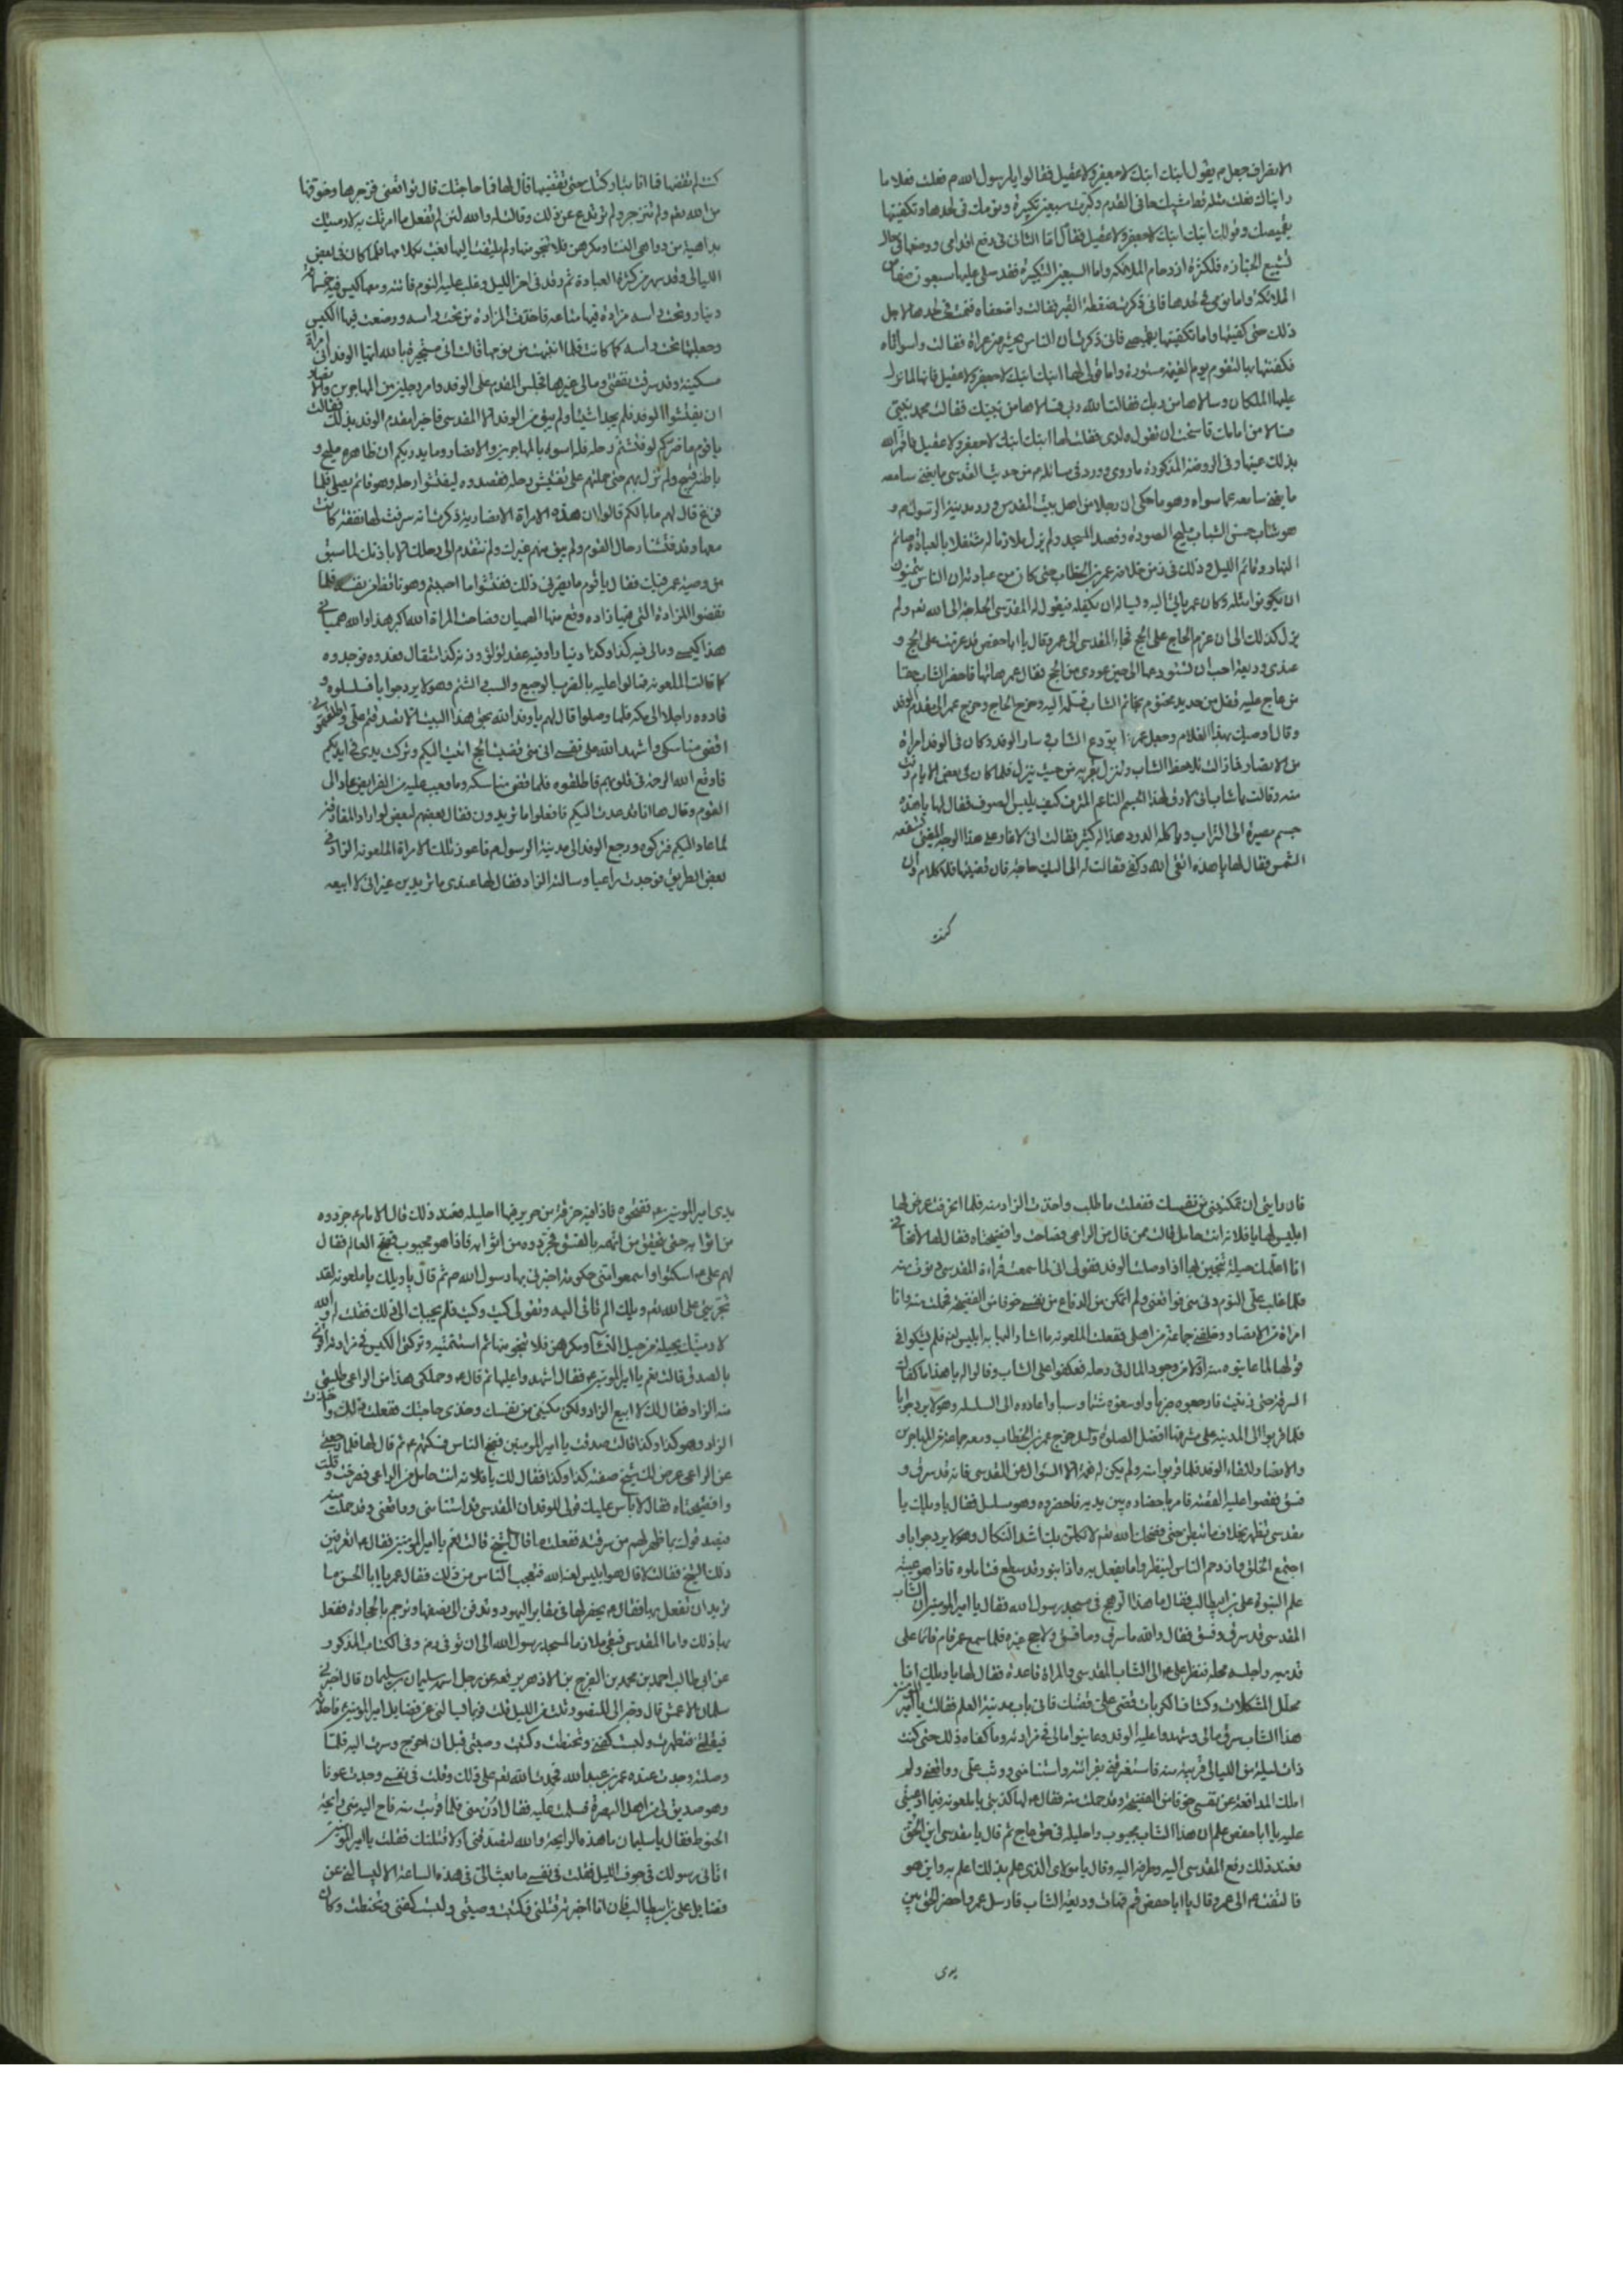 الانصراف جعل م يقول ابنك ابنك لا جعفر ولا عقيل فقالوا يا رسول الله م فعلت فعلا ما
رايناك فعلت مثله قط مشيك حافى القدم وكبرت سبعين تكبيرة ونومك فى لحدها وتكفينها
بقميصك وقولك ابنك ابنك لا جعفر ولا عقيل فقال اما التانى فى رفع اقدامى ووضعها فى حال
تشييع الجنازه فلكثرة ازدحام الملائكه واما السبعين التكبيرة فقد صلى عليها سبعون صفا من
الملائكة واما نومى فى لحدها فانى ذكرت ضغطة القبر فقالت واضعفاه فنمت فى لحدها لاجل
ذلك حتى كفيتها واما تكفينها بقميصى فانى ذكرت ان الناس يحشرون عراة فقالت واسوأتاه
فكفنتها به لتقوم يوم القيمه مستورة واما قولى لها ابنك ابنك لا جعفر ولا عقيل فانها لما نزل
عليها الملكان وسألاها من ربك فقالت الله ربى فسألاها من نبيك فقالت محمد نبيى
فسألا من امامك فاستحت ان تقول ولدى فقلت لها ابنك ابنك لا جعفر ولا عقيل فاقر الله
بذلك عينها وفى الروضة المذكورة ما روى وورد فى من حديث المقدسى ما يغنى سامعه
ما يغنى سامعه عما سواه وهو ما حكى ان رجلا من اهل بيت المقدس ورد مدينة الرسول م و
هو شاب حسن الشباب مليح الصورة وقصد المسجد ولم يزل ملازما له مشتغلا بالعبادة صائم
النهار وقائم الليل وذلك فى زمن خلافة عمر بن الخطاب حتى كان من عبادته ان الناس يتمنون
ان يكونوا مثله وكان عمر ياتى اليه وليساله ان يكفيله فيقول له المقدسى الحاجة الى الله تعم ولم
يزل كذلك الى ان عزم الحاج على الحج فجاء المقدسى الى عمر وقال يا ابا حفص قد عزمت على الحج و
عندى وديعة احب ان تستودعها الى حين عودى من الحج فقال عمر هاتها فاحضر الشاب حقا
من عاج عليه قفل من حديد مختوم بخاتم الشاب فسلمه اليه وخرج الحاج وخرج عمر الى مقدم الوفد
وقال اوصيك بهذا الغلام وجعل عمر يودع الشاب سار الوفد وكان فى الوفد امراة
من الانصار فما زالت تلاحظ الشاب وتنزل بقربه من حيث ينزل فلما كان فى بعض الايام دنت
منه وقالت يا شاب انى لارق لهذا الجسم الناعم المترف كيف يلبس الصوف فقال لها يا هذه
جسم مصيره الى التراب وياكله الدود هذا له كثير فقالت انى لاغار على هذا الوجه المضئ تشعثه
الشمس فقال لها يا هذه اتقى الله وكفى فقالت لى اليك حاجة فان قضيتها فلا كلام وان
كنت
كنت لم تقضها فما انا بتاركتك حتى تقضيها فقال لها فما حاجتك قال تواقعنى فزجرها وخوفها
من الله تعم ولم تنزجر ولم ترتدع عن ذلك وقالت له والله لئن لم تفعل ما امرتك به لارمينك
بداهية من دواهى النساء ومكرهن فلا تنجو منها ولم يلتفت اليها لعبت بكلامها فلما كان فى بعض
الليالى وقد سهر من كثرة العبادة ثم رقد فى اخر الليل وغلب عليه النوم فاتته ومعها كيس فيه خمسمائة
دينار وتحت راسه مزادة فيها متاعه فاخذت المزادة من تحت راسه ووضعت فيها الكيس
وجعلتها تحت راسه كما كانت فلما انتبهت من نومها قالت انى مستجيرة بالله ايها الوفد انى امراة
مسكينة وقد سرقت نفقتى ومالى غيرها فجلس المقدم على الوفد وامر رجلين من المهاجرين والانصار
ان يفتشوا الوفد فلم يجدا شيئا ولم يبق من الوفد الا المقدسى فاخبر مقدم الوفد بذلك فقالت
يا قوم ما ضركم لو فتشتم رحله فله اسوة بالمهاجرين والانصار وما يدريكم ان ظاهره مليح و
باطنه قبيح ولم تزل بهم حتى حملتهم على تفتيش رحله فقصدوه ليفتشوا رحله وهو قائم يصلى فلما
فرغ قال لهم ما بالكم قالوا ان هذه الامراة الانصارية ذكرت انه سرقت لها نفقة كانت
معها وقد فتشنا رحال القوم ولم يبق منهم غيرك ولم نتقدم الى رحلك الا باذنك لما سبق
من وصية عمر فيك فقال يا قوم ما يضرنى ذلك ففتشوا ما احببتم وهو ثقة من نفسه فلما
نفضوا المزادة التى فيها زاده وقع منها الهميان فصاحت المراة الله اكبر هذا والله همياني
هذا كيسى ومالى فيه كذا وكذا دينارا وفيه عقد لؤلؤ وزنه كذا مثقال فعدوه فوجدوه
كما قالت الملعونة فمالوا عليه بالضرب الوجيع والسب والشتم وهو لا يرد جوابا فسلسلوه و
قادوه راجلا الى مكه فلما وصلوا قال لهم يا وفد الله بحق هذا البيت الا تصدقتم علي واطلقتمونى
اقضى مناسكى واشهد الله على نفسى انى متى قضيت الحج اتيت اليكم وتركت يدى فى ايديكم
فاوقع الله الرحمة فى قلوبهم فاطلقوه فلما قضى مناسكه وما وجب عليه من الفرايض عاد الى
القوم وقال ها انا قد عدت اليكم فافعلوا ما تريدون فقال بعضهم لبعض لو اراد المفارقة
لما عاد اليكم فتركوه ورجع الوفد الى مدينة الرسول م فاعوز تلك الامراة الملعونة الزاد فى
بعض الطريق فوجدت راعيا وسالته الزاد فقال لها عندى ما تريدين غير انى لا ابيعه
فان رايتى ان تمكنينى من نفسك ففعلت ما طلب واخذت الزاد منه فلما انحرفت عرض لها
ابليس لها يا فلانه انت حامل قالت ممن قال من الراعى فصاحت وافضيحتاه فقال لها لا تخافى
انا اعلمك حيلة تنجين بها اذا وصلت الوفد فقولى انى لما سمعت قراءة المقدسى دنوت منه
فلما غلب علي النوم دنى منى فواقعنى ولم اتمكن من الدفاع عن نفسى خوفا من الفضيحة فحملت منه وانا
امراة من الانصار وخلفى جماعة من اهلى ففعلت الملعونة ما اشار اليها به ابليس لعنه فلم يشكوا فى
قولها لما عاينوه من اولا من وجود المال فى رحله فعكفوا على الشاب وقالوا له يا هذا ما كفاك
السرقة حتى زنيت فاوجعوه ضربا واوسعوه شتما وسبا واعادوه الى السلسلة وهو لا يرد جوابا
فلما قربوا الى المدينة على مشرفها افضل الصلوة والسلم خرج عمر بن الخطاب ومعه جماعة من المهاجرين
والانصار للقاء الوفد فلما قربوا منه ولم يكن له همة الا السؤال عن المقدسى فانه قد سرق و
فسق فقصوا عليه القصه فامر باحضاره بين يديه فاحضروه وهو مسلسل فقال يا ويلك يا
مقدسى تظهر بخلاف ما تبطن حتى فضحك الله تعم لانكلن بك اشد النكال وهو لا يرد جوابا و
اجتمع الخلق وازدحم الناس لينظروا ما يفعل به واذا بنور قد سطع فتاملوه فاذا هو عيبة
علم النبوة على بن ابيطالب فقال ما هذا الرهج فى مسجد رسول الله فقال يا امير المومنين ان الشاب
المقدسى قد سرق وفسق فقال والله ما سرق وما فسق ولا حج غيره فلما سمع عمر قام قائما على
قدميه واجلسه محله فنظر على م الى الشاب المقدسى والمراة قاعدة فقال لها يا ويلك انا
محلل المشكلات وكشاف الكربات قصى على قصتك فانى باب مدينة العلم فقالت يا امير المومنين
هذا الشاب سرق مالى وشهدوا عليه الوفد وعاينوا مالى فى مزادته وما كفاه ذلك حتى كنت
ذات ليلة من الليالى قريبة منه فاستغرقنى بقرائته واستنامنى ووثب على وواقعنى ولم
املك المدافعة عن نفسى خوفا من الفضيحة وقد حملت منه فقال م لها كذبتى يا ملعونه فيما ادعيتى
عليه يا ابا حفص اعلم ان هذا الشاب مجبوب واحليله فى حق عاج ثم قال يا مقدسى اين الحق
فعند ذلك رفع المقدسى اليه وطرفه اليه وقال يا مولاى الذى علم بذلك اعلم به واين هو
فالتفت م الى عمر وقال يا ابا حفص قم فهات وديعة الشاب فارسل عمر واحضر الحق بين
يدى
يدى امير المومنين ع ففتحوه فاذا فيه خرقة من حرير فيها احليله فعند ذلك قال الامام م جردوه
من اثوابه حتى تحقق من اتهمه بالفسق فجردوه من اثوابه فاذا هو مجبوب فضج العالم فقال
لهم على م اسكتوا واسمعوا منى حكومة اخبرنى بها رسول الله م ثم قال يا ويلك يا ملعونه لقد
تجريتى على الله تعم ويلك الم تاتى اليه وتقولى كيت وكيت فلم يجبك الى ذلك فقلت له والله
لارمينك بحيلة من حيل النساء ومكرهن فلا تنجو منها ثم استنمتيه وتركتى الكيس فى مزادته اقرى
بالصدق قالت نعم يا امير المومنين ع فقال اشهدوا عليها ثم قال م وحملكى هذا من الراعى طلبتى
منه الزاد فقال لك لا ابيع الزاد ولكن مكنينى من نفسك وخذى حاجتك ففعلت ذلك واخذت
الزاد وهو كذا وكذا قالت صدقت يا امير المومنين فضج الناس فسكتهم م ثم قال لها فلما رجعتى
عن الراعى عرض لك شيخ صفته كذا وكذا فقال لك يا فلانه انت حامل من الراعى فصرخت وقلت
وافضيحتاه فقال لا باس عليك قولى للوفد ان المقدسى قد استنامنى وواقعنى وقد حملت منه
فيصدقوك بما ظهر لهم من سرقته ففعلت ما قال الشيخ قالت نعم يا امير المومنين فقال م اتعرفين
ذلك الشيخ فقالت لا قال هو ابليس لعنه الله فتعجب الناس من ذلك فقال عمر يا ابا الحسن ما
تريد ان تفعل بها فقال م يحفر لها فى مقابر اليهود وتدفن الى نصفها وترجم بالحجارة ففعل
بها ذلك واما المقدسى فبقى ملازما لمسجد رسول الله الى ان توفى رم وفى الكتاب المذكور
عن ابى طالب احمد بن محمد بن الفرج بن الازهر يرفعه عن رجل اسمه سليمان بن سليمان قال اخبرنى
سلمان الاعمش قال وجه الى المنصور ثلث من الليل قلت فى نفسى الى عن فضايل امير المومنين ع فاحدثه
فيقلنى فتطهرت ولبست كفنى وتحنطت وكتبت وصيتى قبل ان اخرج وسرت اليه فلما
وصلته وجدت عنده عمر بن عبيد الله فحمدت الله تعم على ذلك وقلت فى نفسى وجدت عونا
وهو صديق لى من اهل البصرة فسلمت عليه فقال ادن منى فلما قربت منه فاح اليه منى رايحة
الحنوط فقال يا سليمان ما هذه الرايحة والله لتصدقنى او لا قتلتك فقلت يا امير المومنين
اتانى رسولك فى جوف الليل فقلت فى نفسى ما بعث الى فى هذه الساعة الا ليسالنى عن
فضايل على بن ابيطالب فان انا اخبرته قتلنى فكتبت وصيتى ولبست كفنى وتحنطت وكان